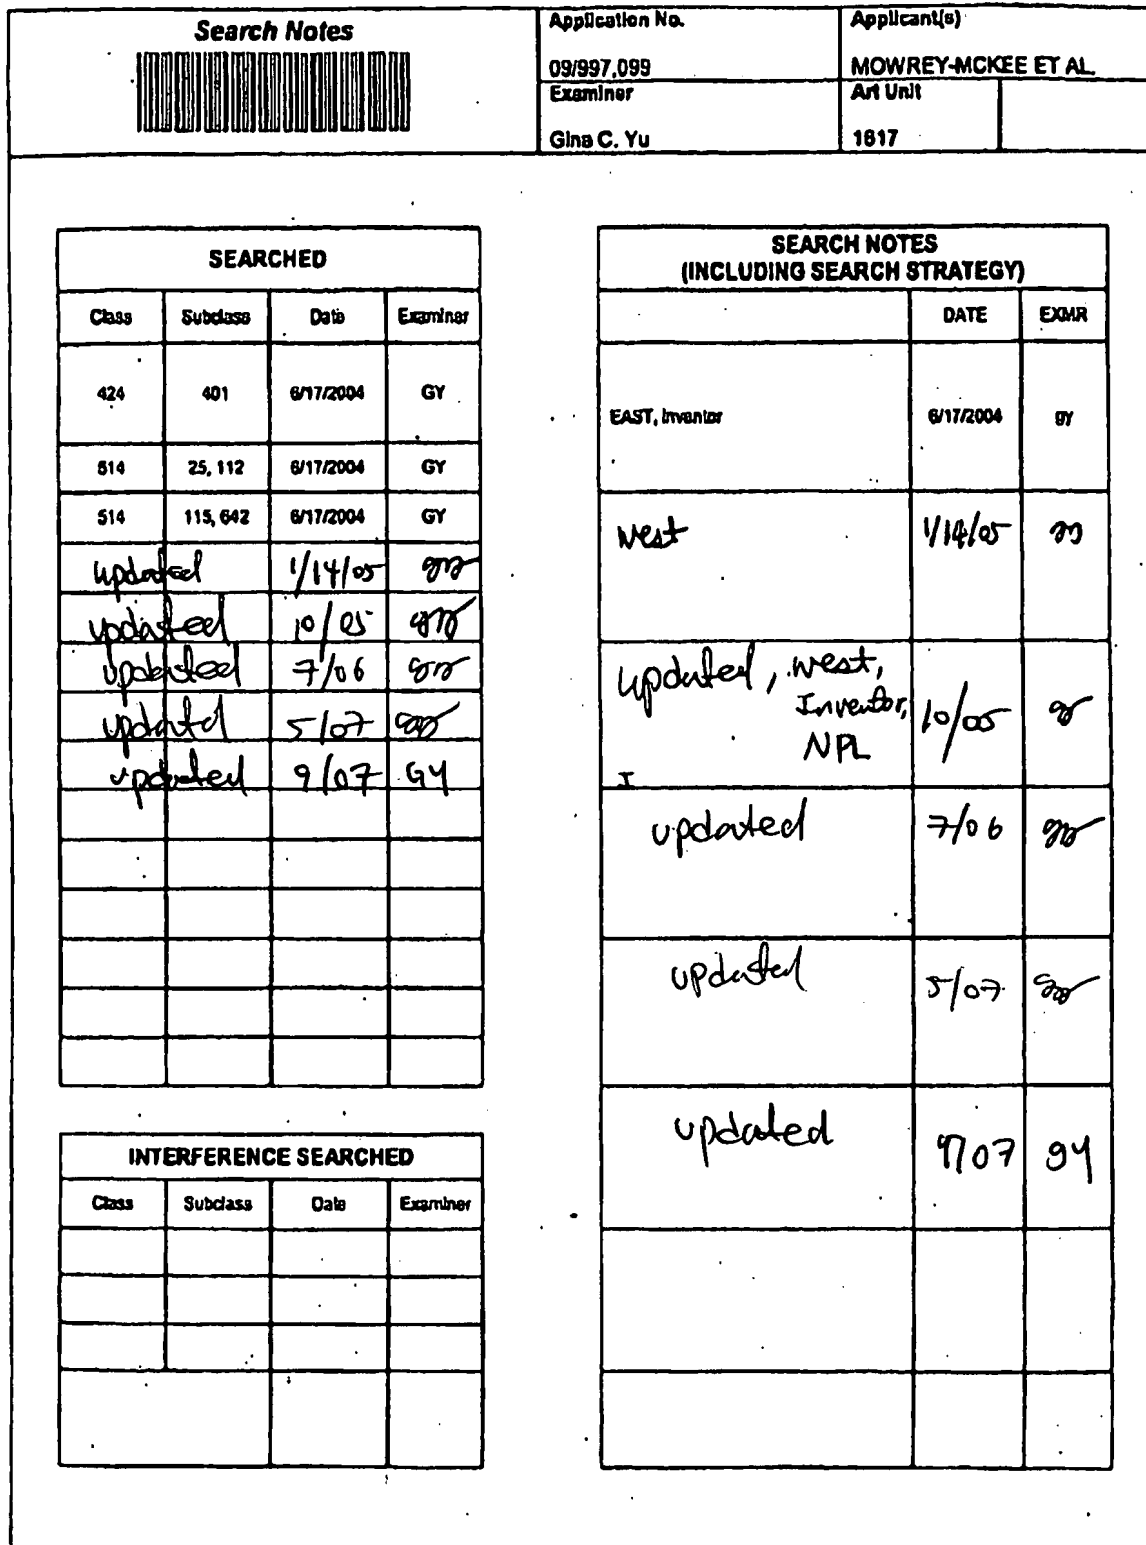 Search Notes
Application No.
Applicant(s)
09/997,099
MOWREY-MCKEE ET AL.
Examiner
Art Unit
Gina C. Yu
1617
SEARCHED
Class Subclass Date Examiner
424 401 6/17/2004 GY
514 25, 112 6/17/2004 GY
514 115, 642 6/17/2004 GY
updated 1/14/05
updated 10/05
updated 7/06
updated 5/07
updated 9/07 GY
INTERFERENCE SEARCHED
Class Subclass Date Examiner
SEARCH NOTES
(INCLUDING SEARCH STRATEGY)
DATE EXMR
EAST, Inventor 6/17/2004 gy
west 1/14/05
updated, west,
Inventor,
NPL
10/05
updated 7/06
updated 5/07
updated 9/07 gy